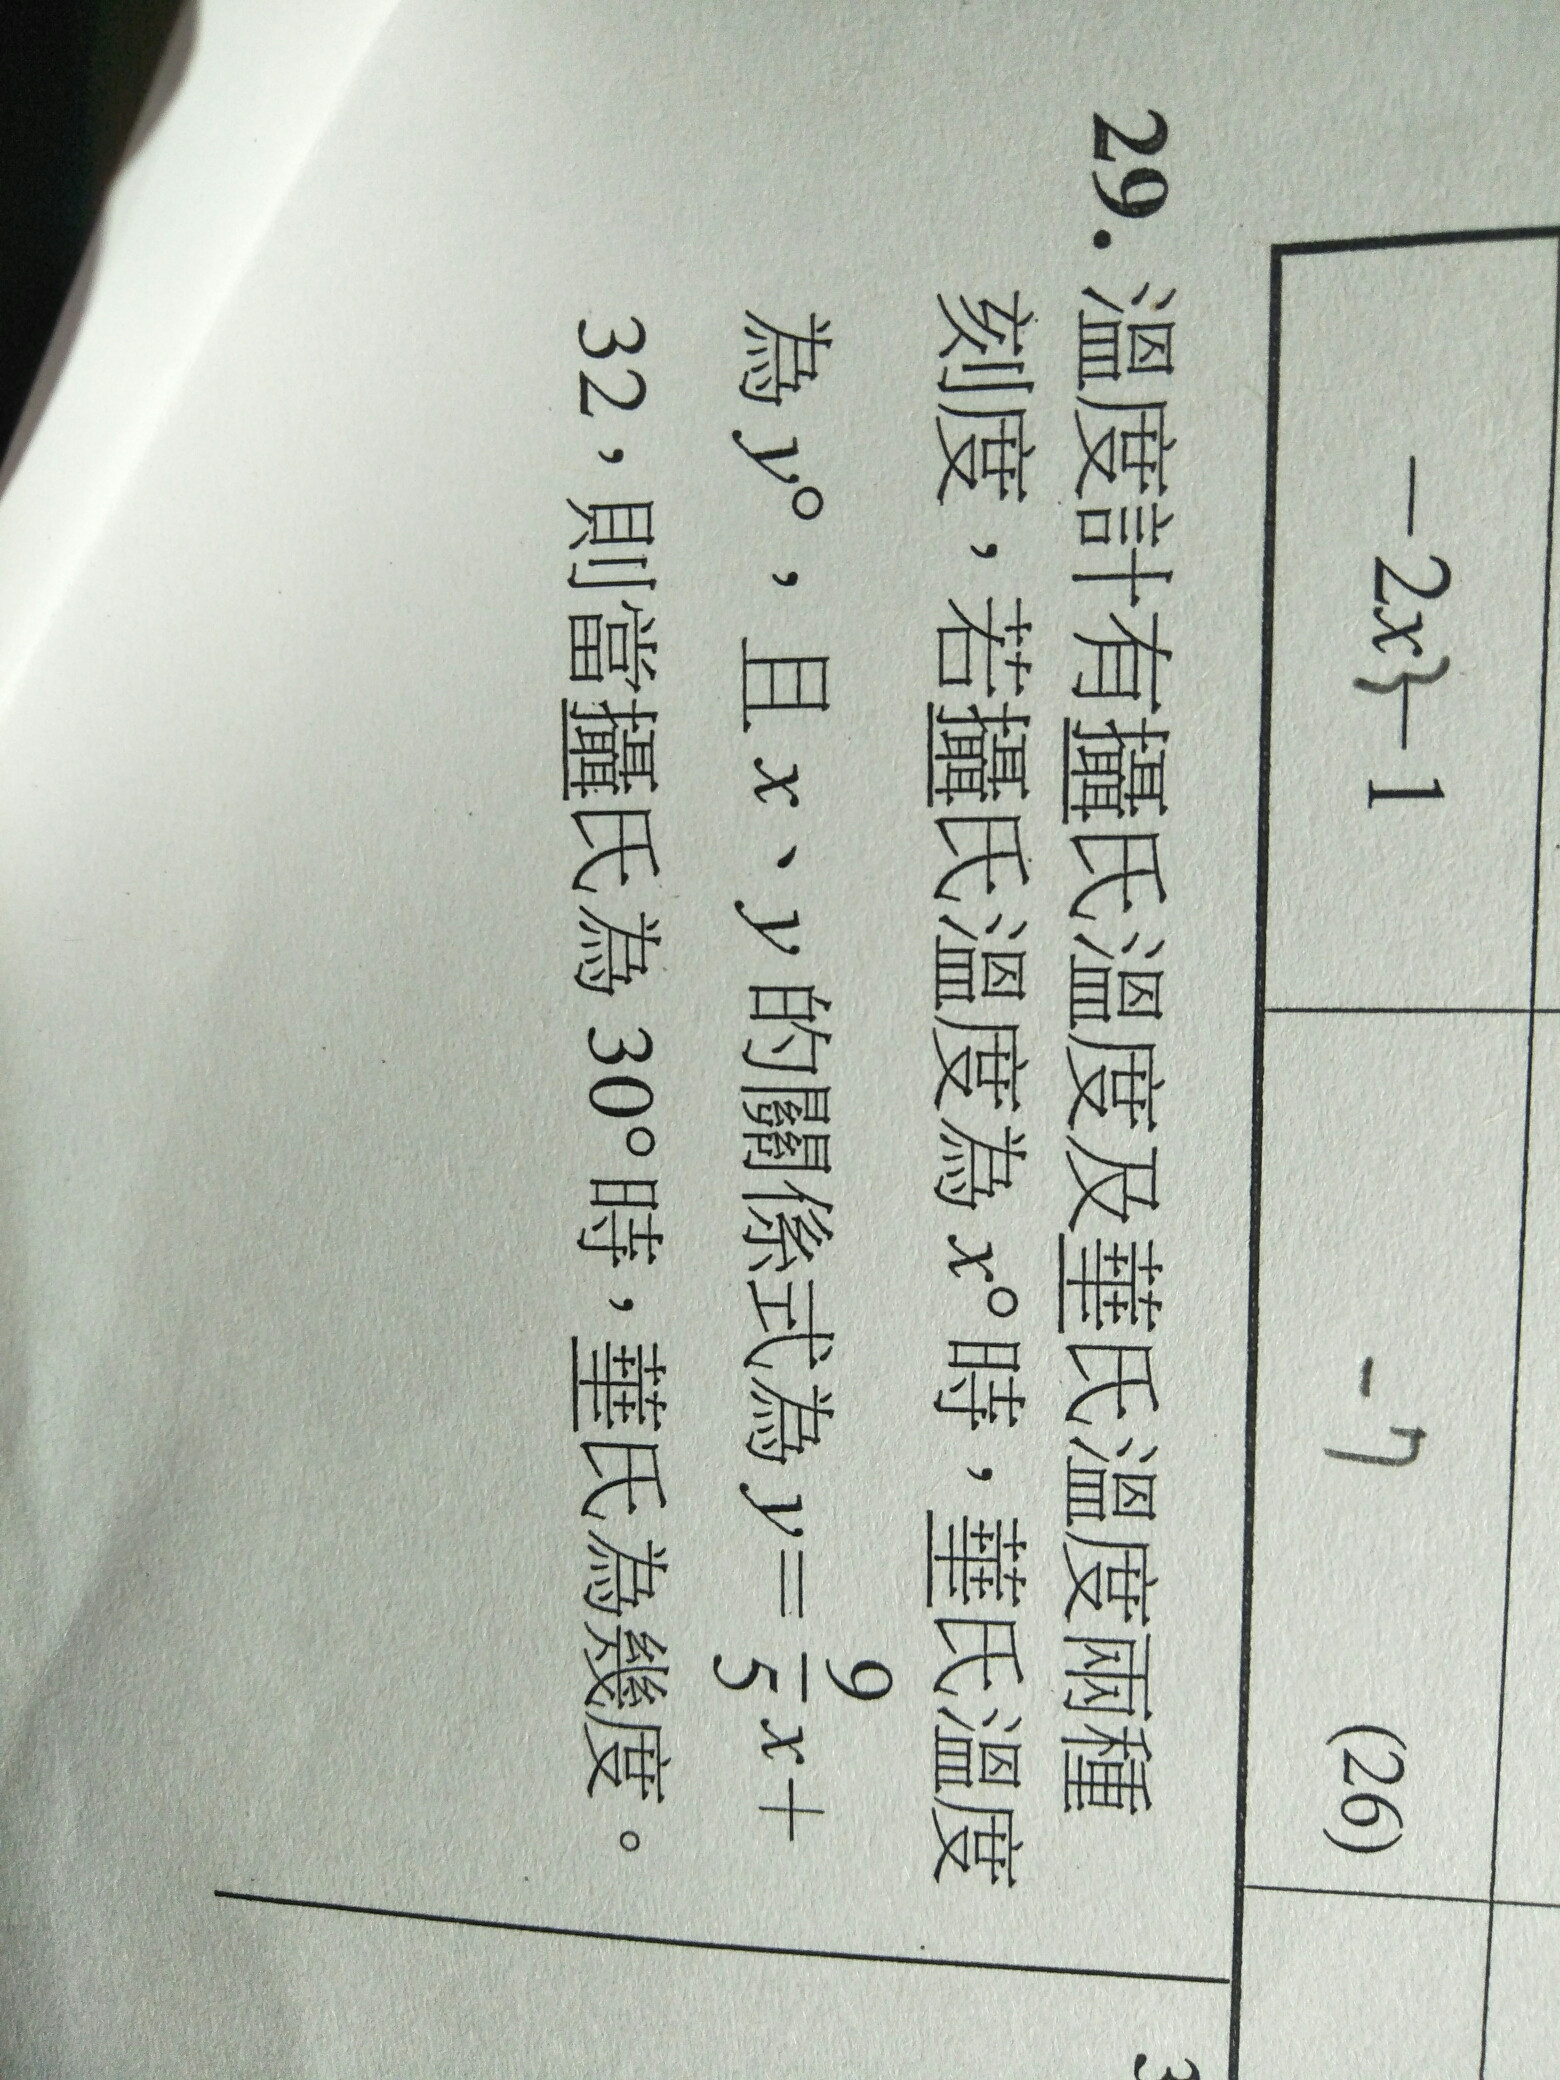 －2x－1
－7
(26)
29. 溫度計有攝氏溫度及華氏溫度兩種
刻度，若攝氏溫度為 x° 時，華氏溫度
為 y°，且 x、y 的關係式為 y＝9/5x＋
32，則當攝氏為 30° 時，華氏為幾度。